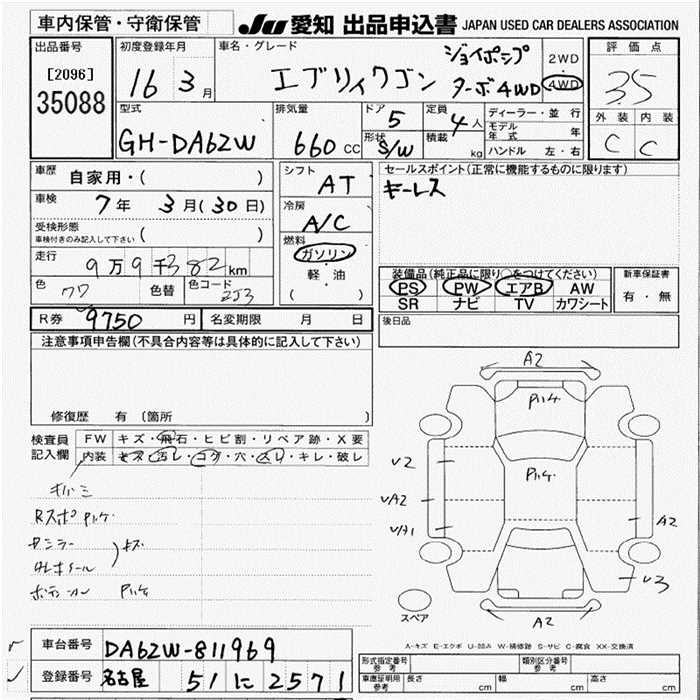 車内保管・守衛保管
JU 愛知 出品申込書 JAPAN USED CAR DEALERS ASSOCIATION
出品番号
[2096]
35088
初度登録年月
16 3月
車名・グレード
ジョイポップ
エブリイワゴン ターボ4WD
2WD
・
4WD
評価点
3.5
外装 内装
C C
型式
GH-DA62W
排気量
660 CC
ドア
5
形状
S/W
定員
4人
積載
kg
ディーラー・並行
モデル年式 年
ハンドル 左・右
車歴
自家用・( )
車検
7年 3月(30日)
受検形態
車検付きのみ記入して下さい ( )
走行
9万9千382km
色
色替
色コード
Z53
シフト
AT
冷房
A/C
燃料
ガソリン
軽・油
( )
セールスポイント(正常に機能するものに限ります)
キーレス
装備品(純正品に限り○をつけてください)
PS PW エアB AW
SR ナビ TV カワシート
新車保証書
有・無
後日品
R券 9750円
名変期限 月 日
注意事項申告欄(不具合内容等は具体的に記入して下さい)
修復歴 有(箇所
検査員
記入欄
FW キズ・飛石・ヒビ割・リペア跡・X要
内装 キズ・汚レ・コゲ・穴・スレ・キレ・破レ
A2
U2
UA2
UA1
A2
U3
A2
スペア
A-キズ E-エクボ U-凹み W-補修跡 S-サビ C-腐食 XX-交換済
車台番号 DA62W-811969
登録番号 名古屋 51 に 2571
形式指定番号
参考
類別区分番号
参考
車庫証明用
参考
長さ cm 幅 cm 高さ cm